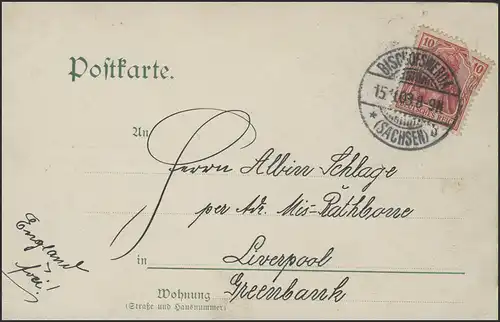 Postkarte.
10 10
BISCHOFSWERDA
8-9N.
* (SACHSEN)
An
Herrn Albin Schlage
per Adr. Mis-Rathbone
in Liverpool
Wohnung Greenbank
(Straße und Hausnummer)
England
frei!